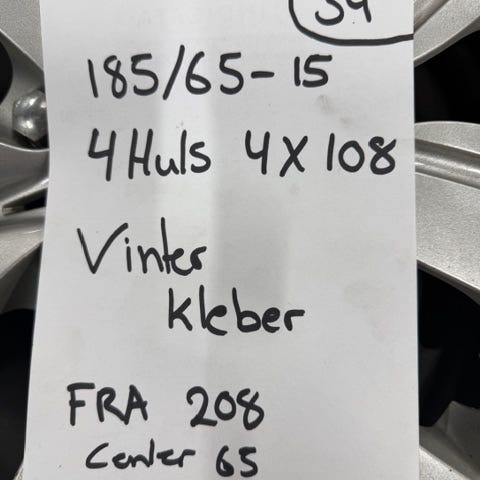 34
185/65-15
4 Huls 4X108
Vinter
Kleber
FRA 208
Center 65